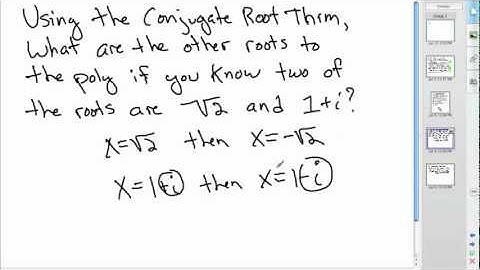 Using the Conjugate Root Thrm,
What are the other roots to
the poly if you know two of
the roots are √2 and 1+i?
x=√2 then x=-√2
x=1+i then x=1-i